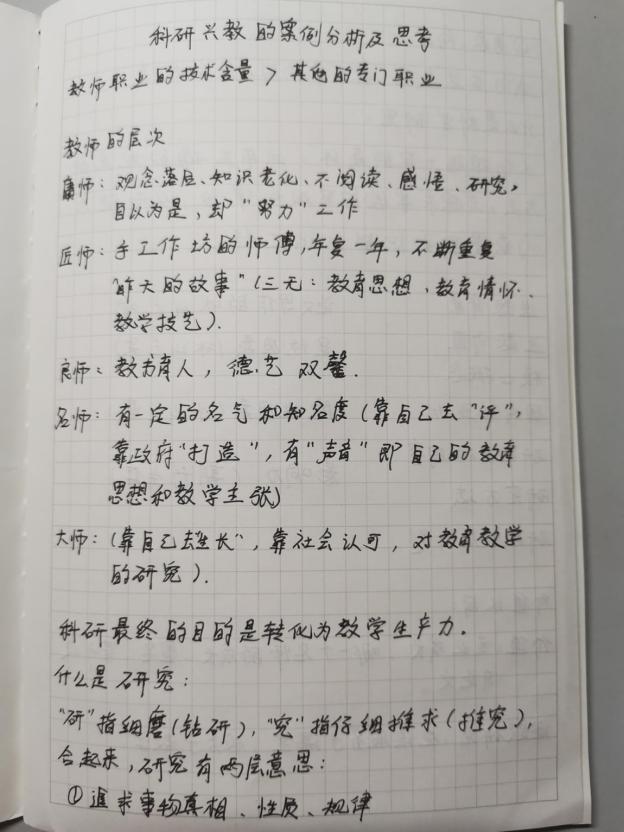 科研兴教的案例分析及思考
教师职业的技术含量 > 其他的专门职业
教师的层次
庸师：观念落后、知识老化、不阅读、感悟、研究，
自以为是，却“努力”工作
匠师：手工作坊的师傅，年复一年，不断重复
“昨天的故事”（三无：教育思想、教育情怀、
教学技艺）.
良师：教书育人，德艺双馨.
名师：有一定的名气和知名度（靠自己去“评”，
靠政府“打造”，有“声音”即自己的教育
思想和教学主张）
大师：（靠自己去生长”，靠社会认可，对教育教学
的研究）.
科研最终的目的是转化为教学生产力。
什么是研究：
“研”指细磨（钻研），“究”指仔细推求（推究），
合起来，研究有两层意思：
①追求事物真相、性质、规律